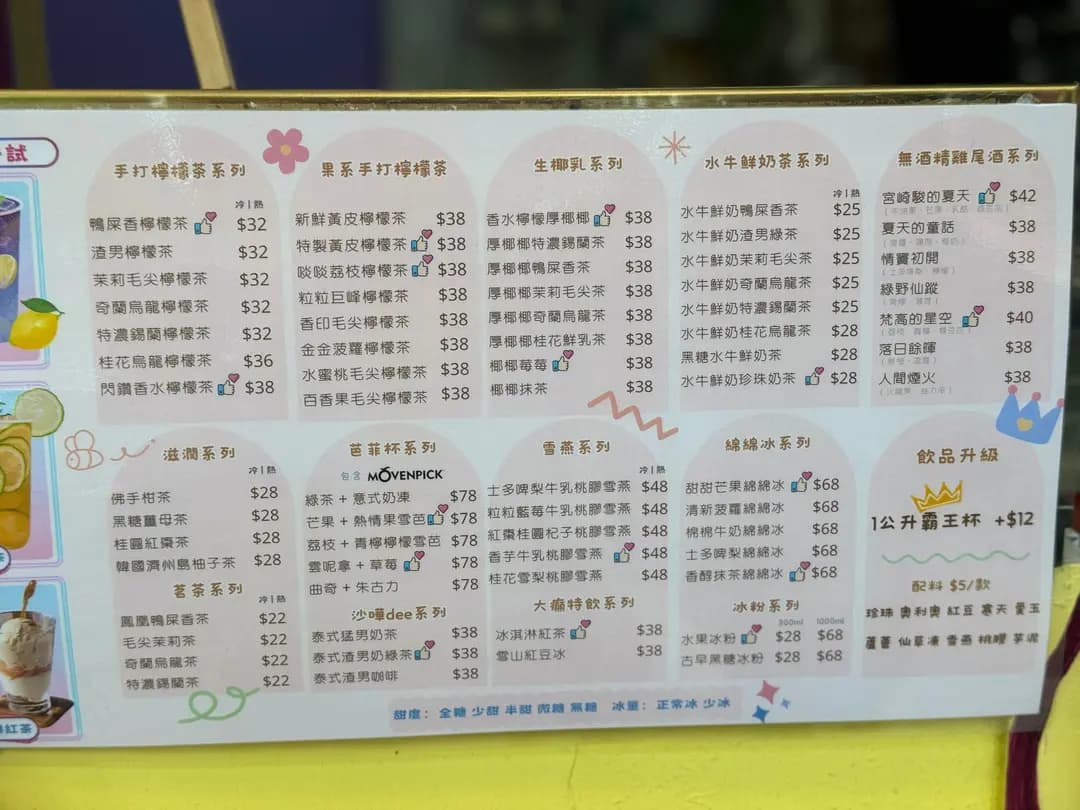 試
手打檸檬茶系列
冷|熱
鴨屎香檸檬茶 $32
渣男檸檬茶 $32
茉莉毛尖檸檬茶 $32
奇蘭烏龍檸檬茶 $32
特濃錫蘭檸檬茶 $32
桂花烏龍檸檬茶 $36
閃鑽香水檸檬茶 $38
果系手打檸檬茶
新鮮黃皮檸檬茶 $38
特製黃皮檸檬茶 $38
啖啖荔枝檸檬茶 $38
粒粒巨峰檸檬茶 $38
香印毛尖檸檬茶 $38
金金菠蘿檸檬茶 $38
水蜜桃毛尖檸檬茶 $38
百香果毛尖檸檬茶 $38
生椰乳系列
香水檸檬厚椰椰 $38
厚椰椰特濃錫蘭茶 $38
厚椰椰鴨屎香茶 $38
厚椰椰茉莉毛尖茶 $38
厚椰椰奇蘭烏龍茶 $38
厚椰椰桂花鮮乳茶 $38
椰椰莓莓 $38
椰椰抹茶 $38
水牛鮮奶茶系列
冷|熱
水牛鮮奶鴨屎香茶 $25
水牛鮮奶渣男綠茶 $25
水牛鮮奶茉莉毛尖茶 $25
水牛鮮奶奇蘭烏龍茶 $25
水牛鮮奶特濃錫蘭茶 $25
水牛鮮奶桂花烏龍茶 $28
黑糖水牛鮮奶茶 $28
水牛鮮奶珍珠奶茶 $28
無酒精雞尾酒系列
宮崎駿的夏天 $42
夏天的童話 $38
情竇初開 $38
綠野仙蹤 $38
梵高的星空 $40
落日餘暉 $38
人間煙火 $38
滋潤系列
冷|熱
佛手柑茶 $28
黑糖薑母茶 $28
桂圓紅棗茶 $28
韓國濟州島柚子茶 $28
茗茶系列
冷|熱
鳳凰鴨屎香茶 $22
毛尖茉莉茶 $22
奇蘭烏龍茶 $22
特濃錫蘭茶 $22
芭菲杯系列
包含 MÖVENPICK
綠茶 + 意式奶凍 $78
芒果 + 熱情果雪芭 $78
荔枝 + 青檸檸檬雪芭 $78
雲呢拿 + 草莓 $78
曲奇 + 朱古力 $78
沙嘩dee系列
泰式猛男奶茶 $38
泰式渣男奶綠茶 $38
泰式渣男咖啡 $38
雪燕系列
冷|熱
士多啤梨牛乳桃膠雪燕 $48
粒粒藍莓牛乳桃膠雪燕 $48
紅棗桂圓杞子桃膠雪燕 $48
香芋牛乳桃膠雪燕 $48
桂花雪梨桃膠雪燕 $48
大癲特飲系列
冰淇淋紅茶 $38
雪山紅豆冰 $38
綿綿冰系列
甜甜芒果綿綿冰 $68
清新菠蘿綿綿冰 $68
棉棉牛奶綿綿冰 $68
士多啤梨綿綿冰 $68
香醇抹茶綿綿冰 $68
冰粉系列
300ml 1000ml
水果冰粉 $28 $68
古早黑糖冰粉 $28 $68
飲品升級
1公升霸王杯 +$12
配料 $5/款
珍珠 奧利奧 紅豆 寒天 愛玉
蘆薈 仙草凍 雪燕 桃膠 芋泥
甜度： 全糖 少甜 半甜 微糖 無糖 冰量： 正常冰 少冰
茶
紅茶